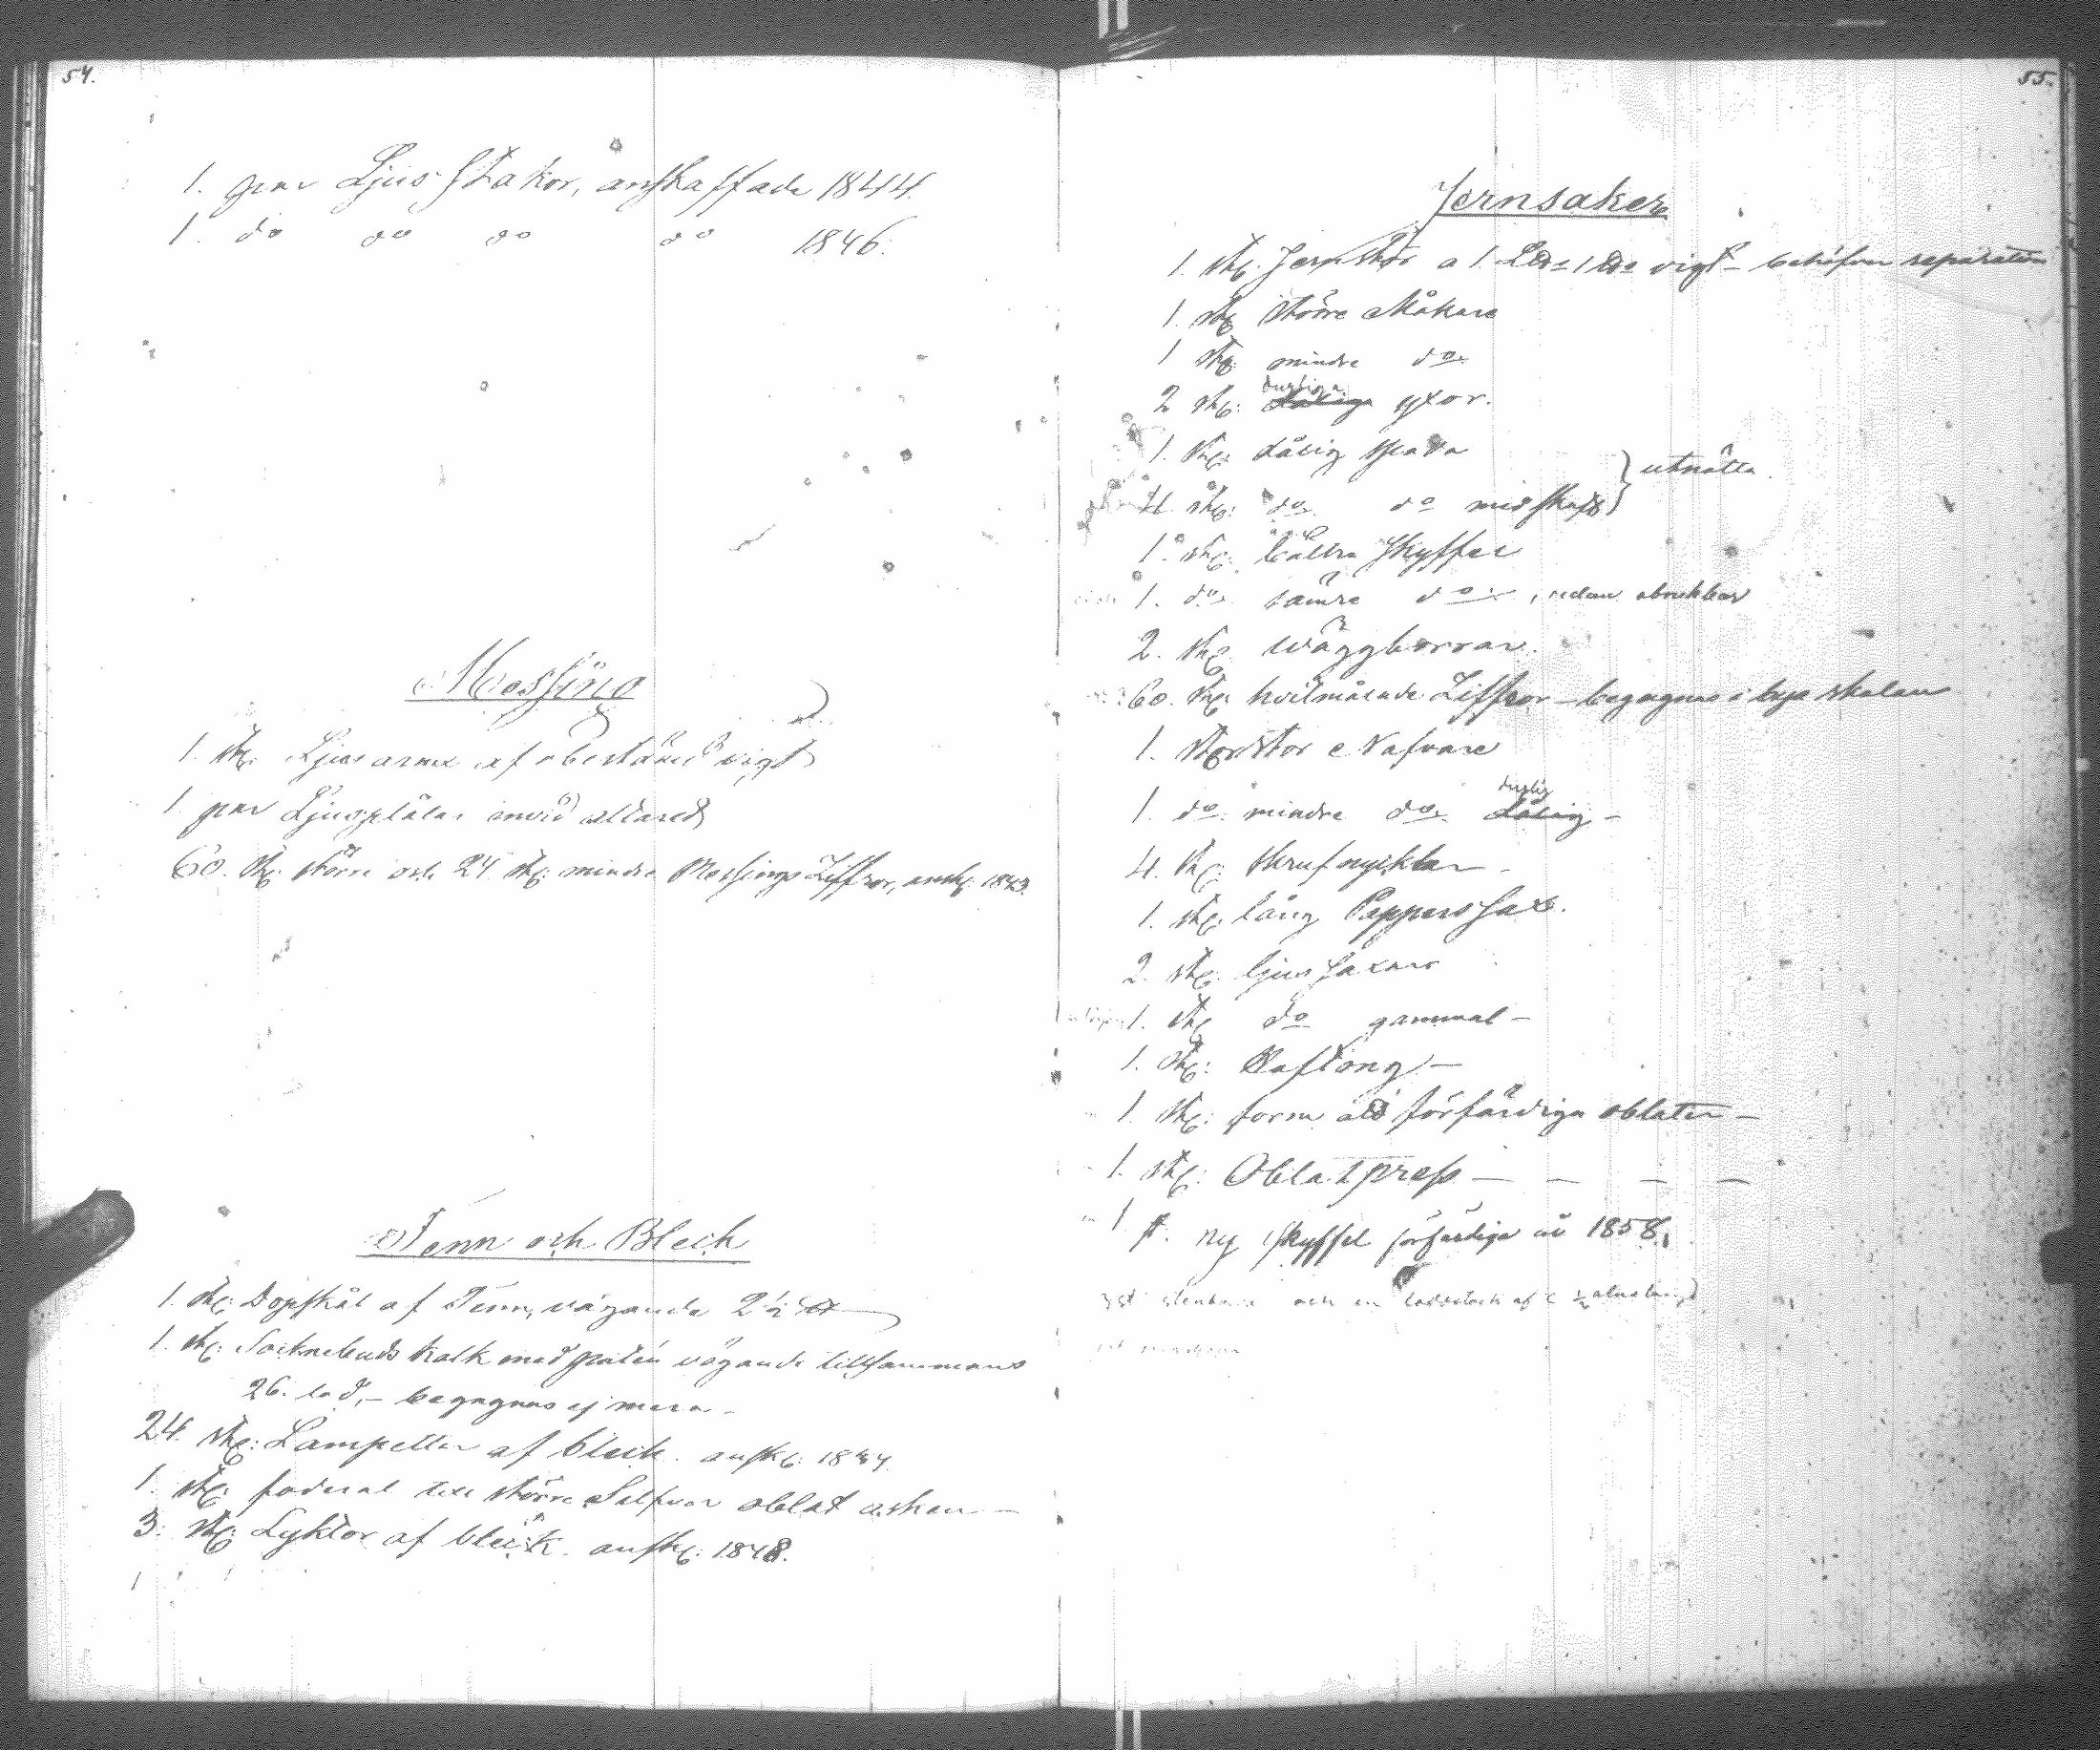 54.
1. par Ljus Stakor, anskaffade 1844.
1. do do do do 1846.
Messing
1. st: Ljusarme af obestämd vigt
1 par Ljusplåtar invid altaret
60. st: större och 24 st: mindre Messings Ziffror, ansk: 1843.
Tenn och Bleck
1. st: Dopskål af Tenn, vägande 2½ ℔
1. st: Socknebuds kalk med patén vägande tillsammans
26. lod, - begagnas ej mera -
24. st: Lampetter af bleck. ansk: 1844.
1. st: foderal till större Silfver oblat asken -
3. st: Lyktor af bleck. ansk: 1848.
55.
Jernsaker
1. st: Jernstör a 1. vigt - behöfver reparation
1. st: större Måkare
1 st: mindre do
2 st: dugliga yxor.
1. st: dålig spada
4 st: do do med skaft } utnötta.
1. st: bättre Skyffel
1. do sämre do, redan obrukbar
2. st: Wäggborrar.
60. st: hvitmålade Ziffror - begagnas i byaskolan
1. st: stor Nafvare
1. do mindre do duglig dålig -
4. st: skrufnycklar -
1. st: lång Papperssax.
2. st: ljussaxar
1. st: do gammal -
1. st: Haftång -
1. st: form att förfärdiga oblater -
1. st: Oblatpress - - - -
1 st. ny skyffel förfärdiga år 1858.
3 st och en af ½ alns längd